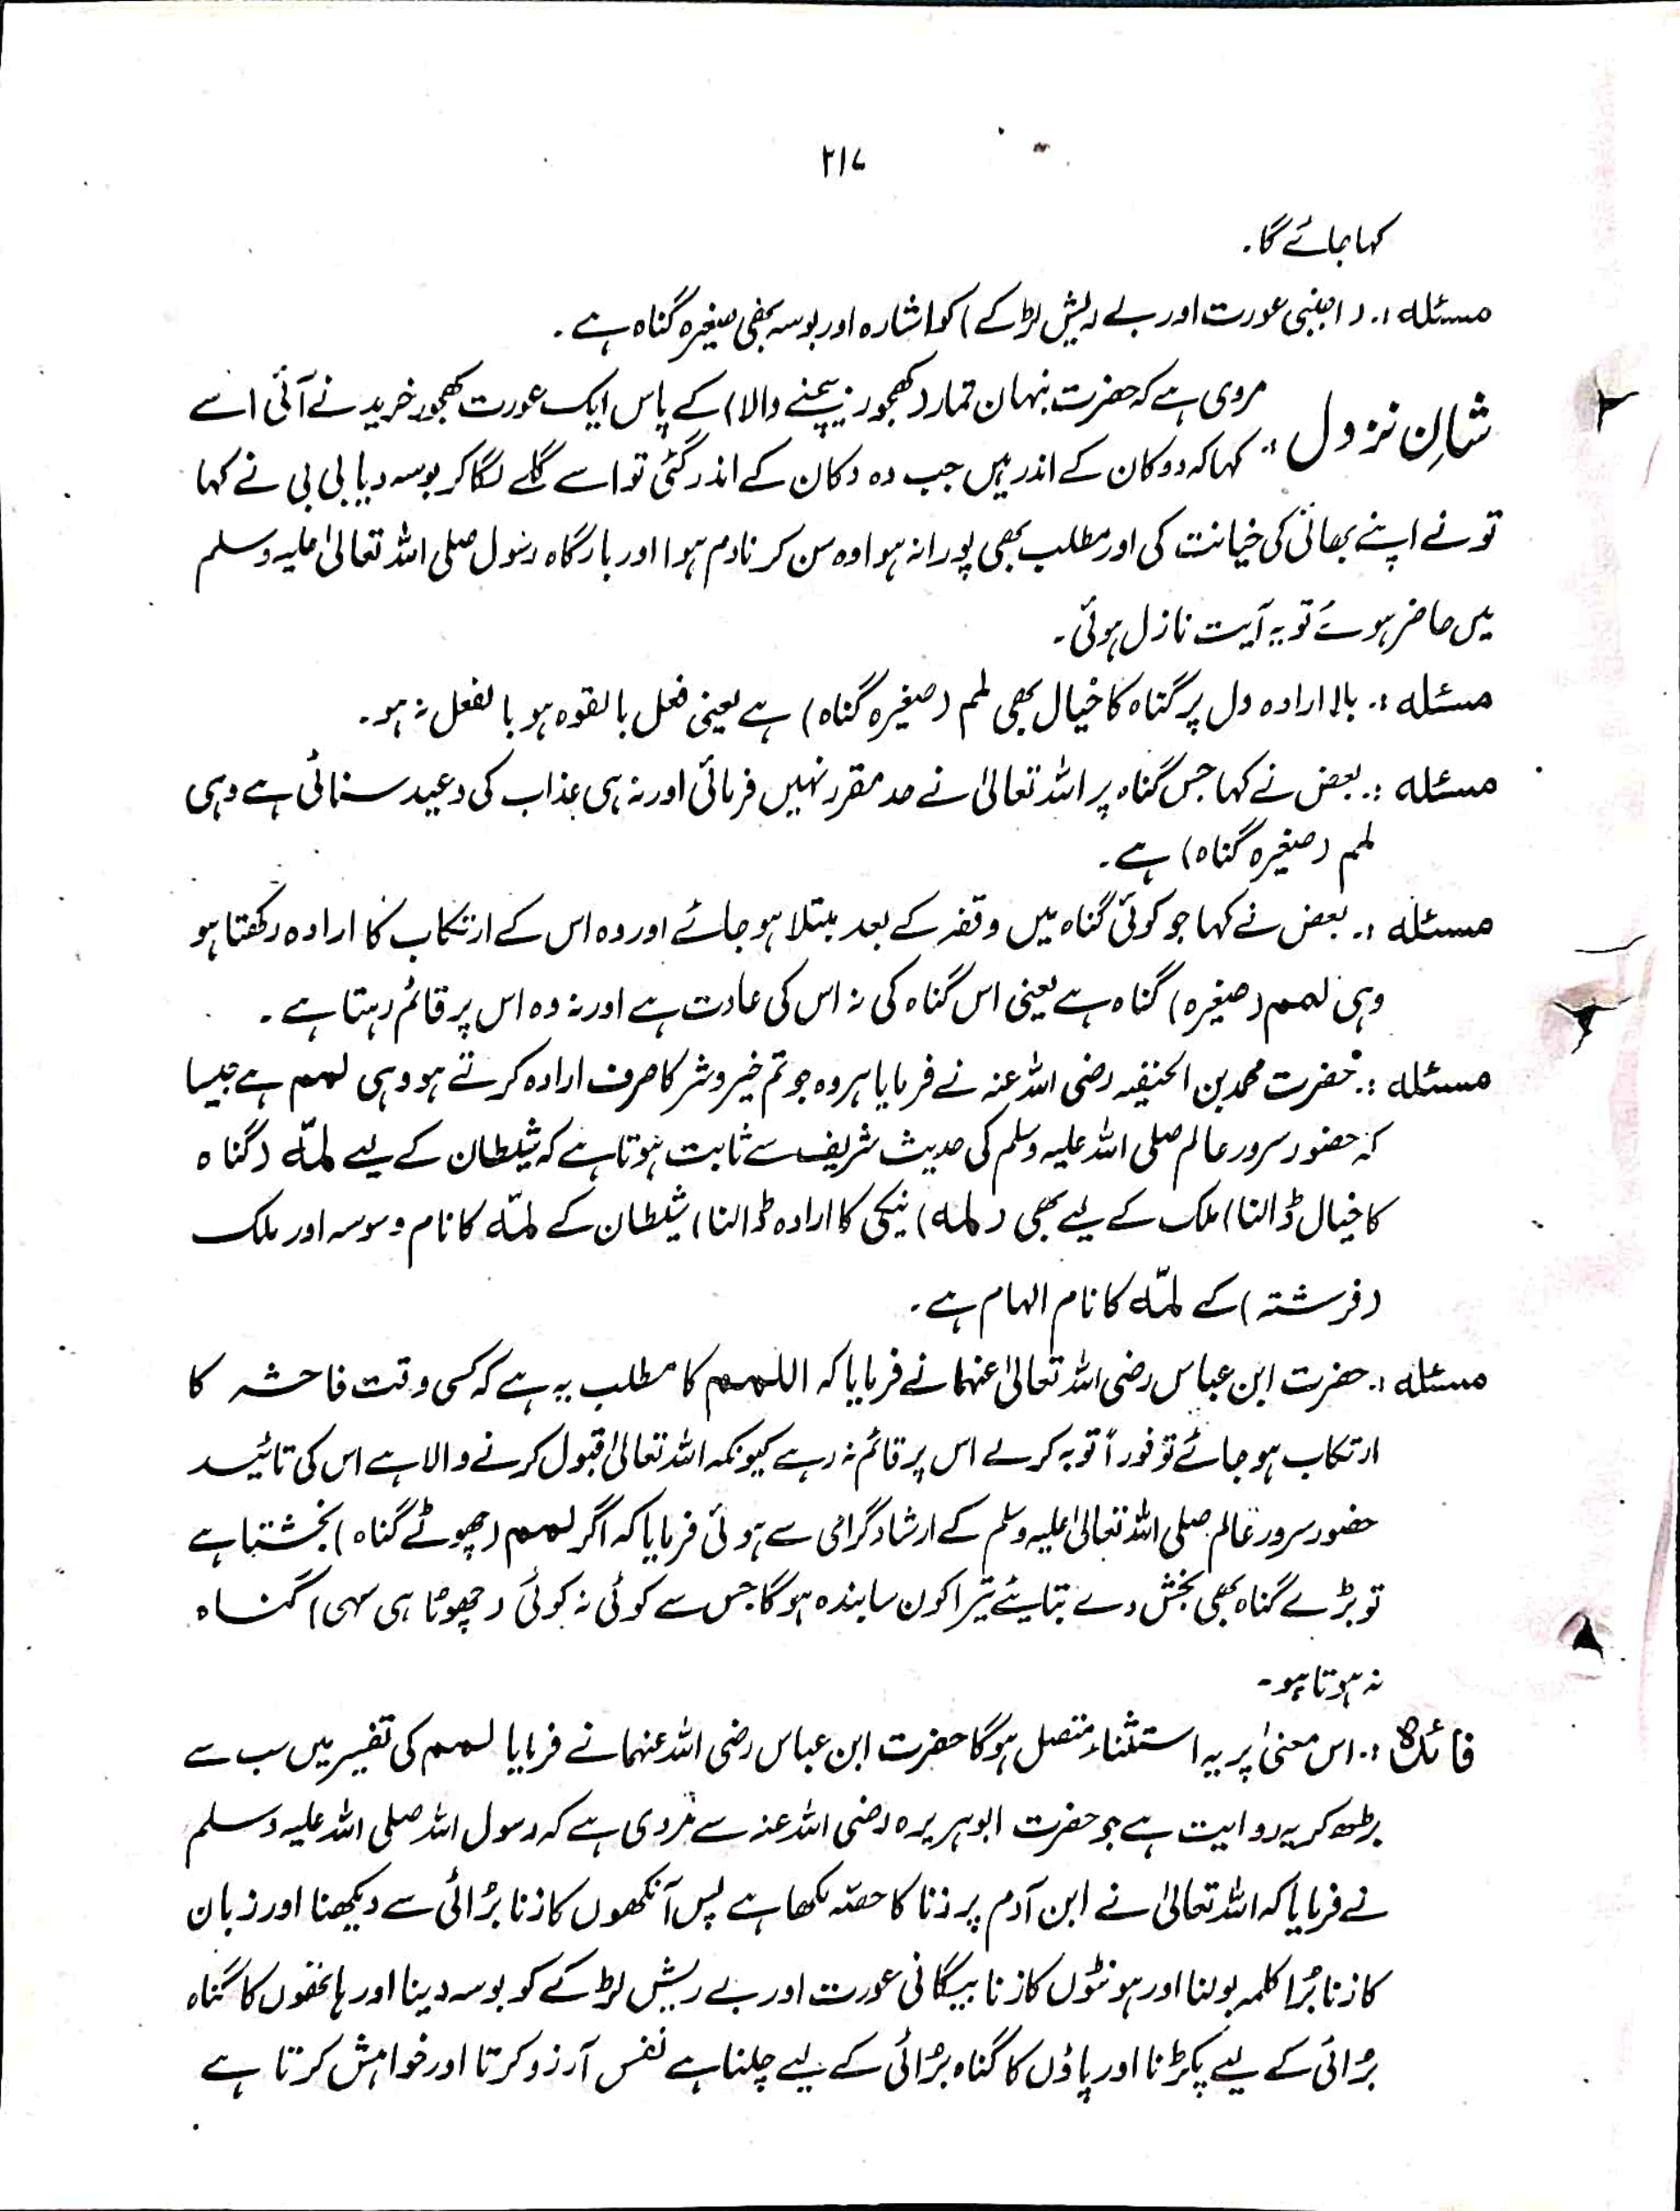 ۲۱۷
کہا جائے گا۔
مسئلہ :۔ (اجنبی عورت اور بے ریش لڑکے) کو اشارہ اور بوسہ بھی صغیرہ گناہ ہے۔
شانِ نزول :۔ مروی ہے کہ حضرت نبہان تمار (کھجور بیچنے والا) کے پاس ایک عورت کھجور خریدنے آئی اسے
کہا کہ دوکان کے اندر ہیں جب وہ دکان کے اندر گئی تو اسے گلے لگا کر بوسہ دیا بی بی نے کہا
تو نے اپنے بھائی کی خیانت کی اور مطلب بھی پورا نہ ہوا وہ سن کر نادم ہوا اور بارگاہ رسول صلی اللہ تعالیٰ علیہ وسلم
میں حاضر ہوئے تو یہ آیت نازل ہوئی۔
مسئلہ :۔ بلا ارادہ دل پر گناہ کا خیال بھی لمم (صغیرہ گناہ) ہے یعنی فعل بالقوہ ہو بالفعل نہ ہو۔
مسئلہ :۔ بعض نے کہا جس گناہ پر اللہ تعالیٰ نے حد مقرر نہیں فرمائی اور نہ ہی عذاب کی وعید سنائی ہے وہی
لمم (صغیرہ گناہ) ہے۔
مسئلہ :۔ بعض نے کہا جو کوئی گناہ میں وقفہ کے بعد مبتلا ہو جائے اور وہ اس کے ارتکاب کا ارادہ رکھتا ہو
وہی لمم (صغیرہ) گناہ ہے یعنی اس گناہ کی نہ اس کی عادت ہے اور نہ وہ اس پر قائم رہتا ہے۔
مسئلہ :۔ حضرت محمد بن الحنفیہ رضی اللہ عنہ نے فرمایا ہر وہ جو تم خیر و شر کا صرف ارادہ کرتے ہو وہی لمم ہے جیسا
کہ حضور سرور عالم صلی اللہ علیہ وسلم کی حدیث شریف سے ثابت ہوتا ہے کہ شیطان کے لیے لمّہ (گناہ
کا خیال ڈالنا) ملک کے لیے بھی (لمہ) نیکی کا ارادہ ڈالنا) شیطان کے لمّہ کا نام وسوسہ اور ملک
(فرشتہ) کے لمّہ کا نام الہام ہے۔
مسئلہ :۔ حضرت ابن عباس رضی اللہ تعالیٰ عنہما نے فرمایا کہ اللمم کا مطلب یہ ہے کہ کسی وقت فاحشہ کا
ارتکاب ہو جائے تو فوراً توبہ کرلے اس پر قائم نہ رہے کیونکہ اللہ تعالیٰ قبول کرنے والا ہے اس کی تائید
حضور سرور عالم صلی اللہ تعالیٰ علیہ وسلم کے ارشاد گرامی سے ہوئی فرمایا کہ اگر لمم (چھوٹے گناہ) بخشتا ہے
تو بڑے گناہ بھی بخش دے بتایئے تیرا کون سا بندہ ہو گا جس سے کوئی نہ کوئی (چھوٹا ہی سہی) گناہ
نہ ہوتا ہو۔
فائدہ :۔ اس معنیٰ پر یہ استثناء متصل ہو گا حضرت ابن عباس رضی اللہ عنہما نے فرمایا لمم کی تفسیر میں سب سے
بڑھ کر یہ روایت ہے جو حضرت ابوہریرہ رضی اللہ عنہ سے مروی ہے کہ رسول اللہ صلی اللہ علیہ وسلم
نے فرمایا کہ اللہ تعالیٰ نے ابن آدم پر زنا کا حصّہ لکھا ہے پس آنکھوں کا زنا بُرائی سے دیکھنا اور زبان
کا زنا بُرا کلمہ بولنا اور ہونٹوں کا زنا بیگانی عورت اور بے ریش لڑکے کو بوسہ دینا اور ہاتھوں کا گناہ
بُرائی کے لیے پکڑنا اور پاؤں کا گناہ بُرائی کے لیے چلنا ہے نفس آرزو کرتا اور خواہش کرتا ہے